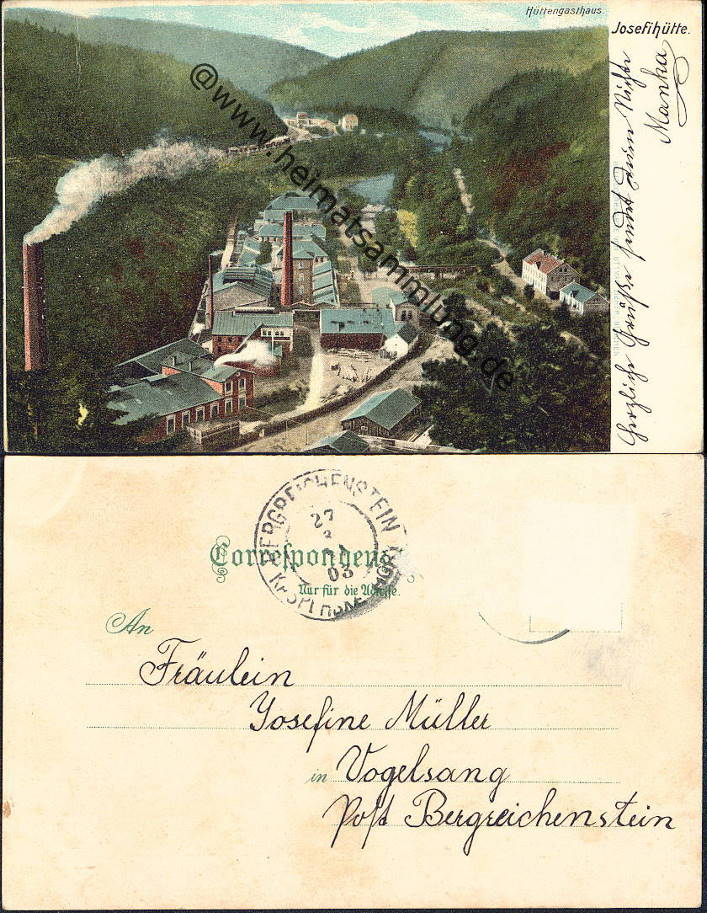 Hüttengasthaus.
Josefihütte.
Herzliche Grüße sendet Deine Nichte
Manka
@www.heimatsammlung.de
Correspondenz
Nur für die Adresse.
BERGREICHENSTEIN
27
03
An
Fräulein
Josefine Müller
in Vogelsang
Post Bergreichenstein